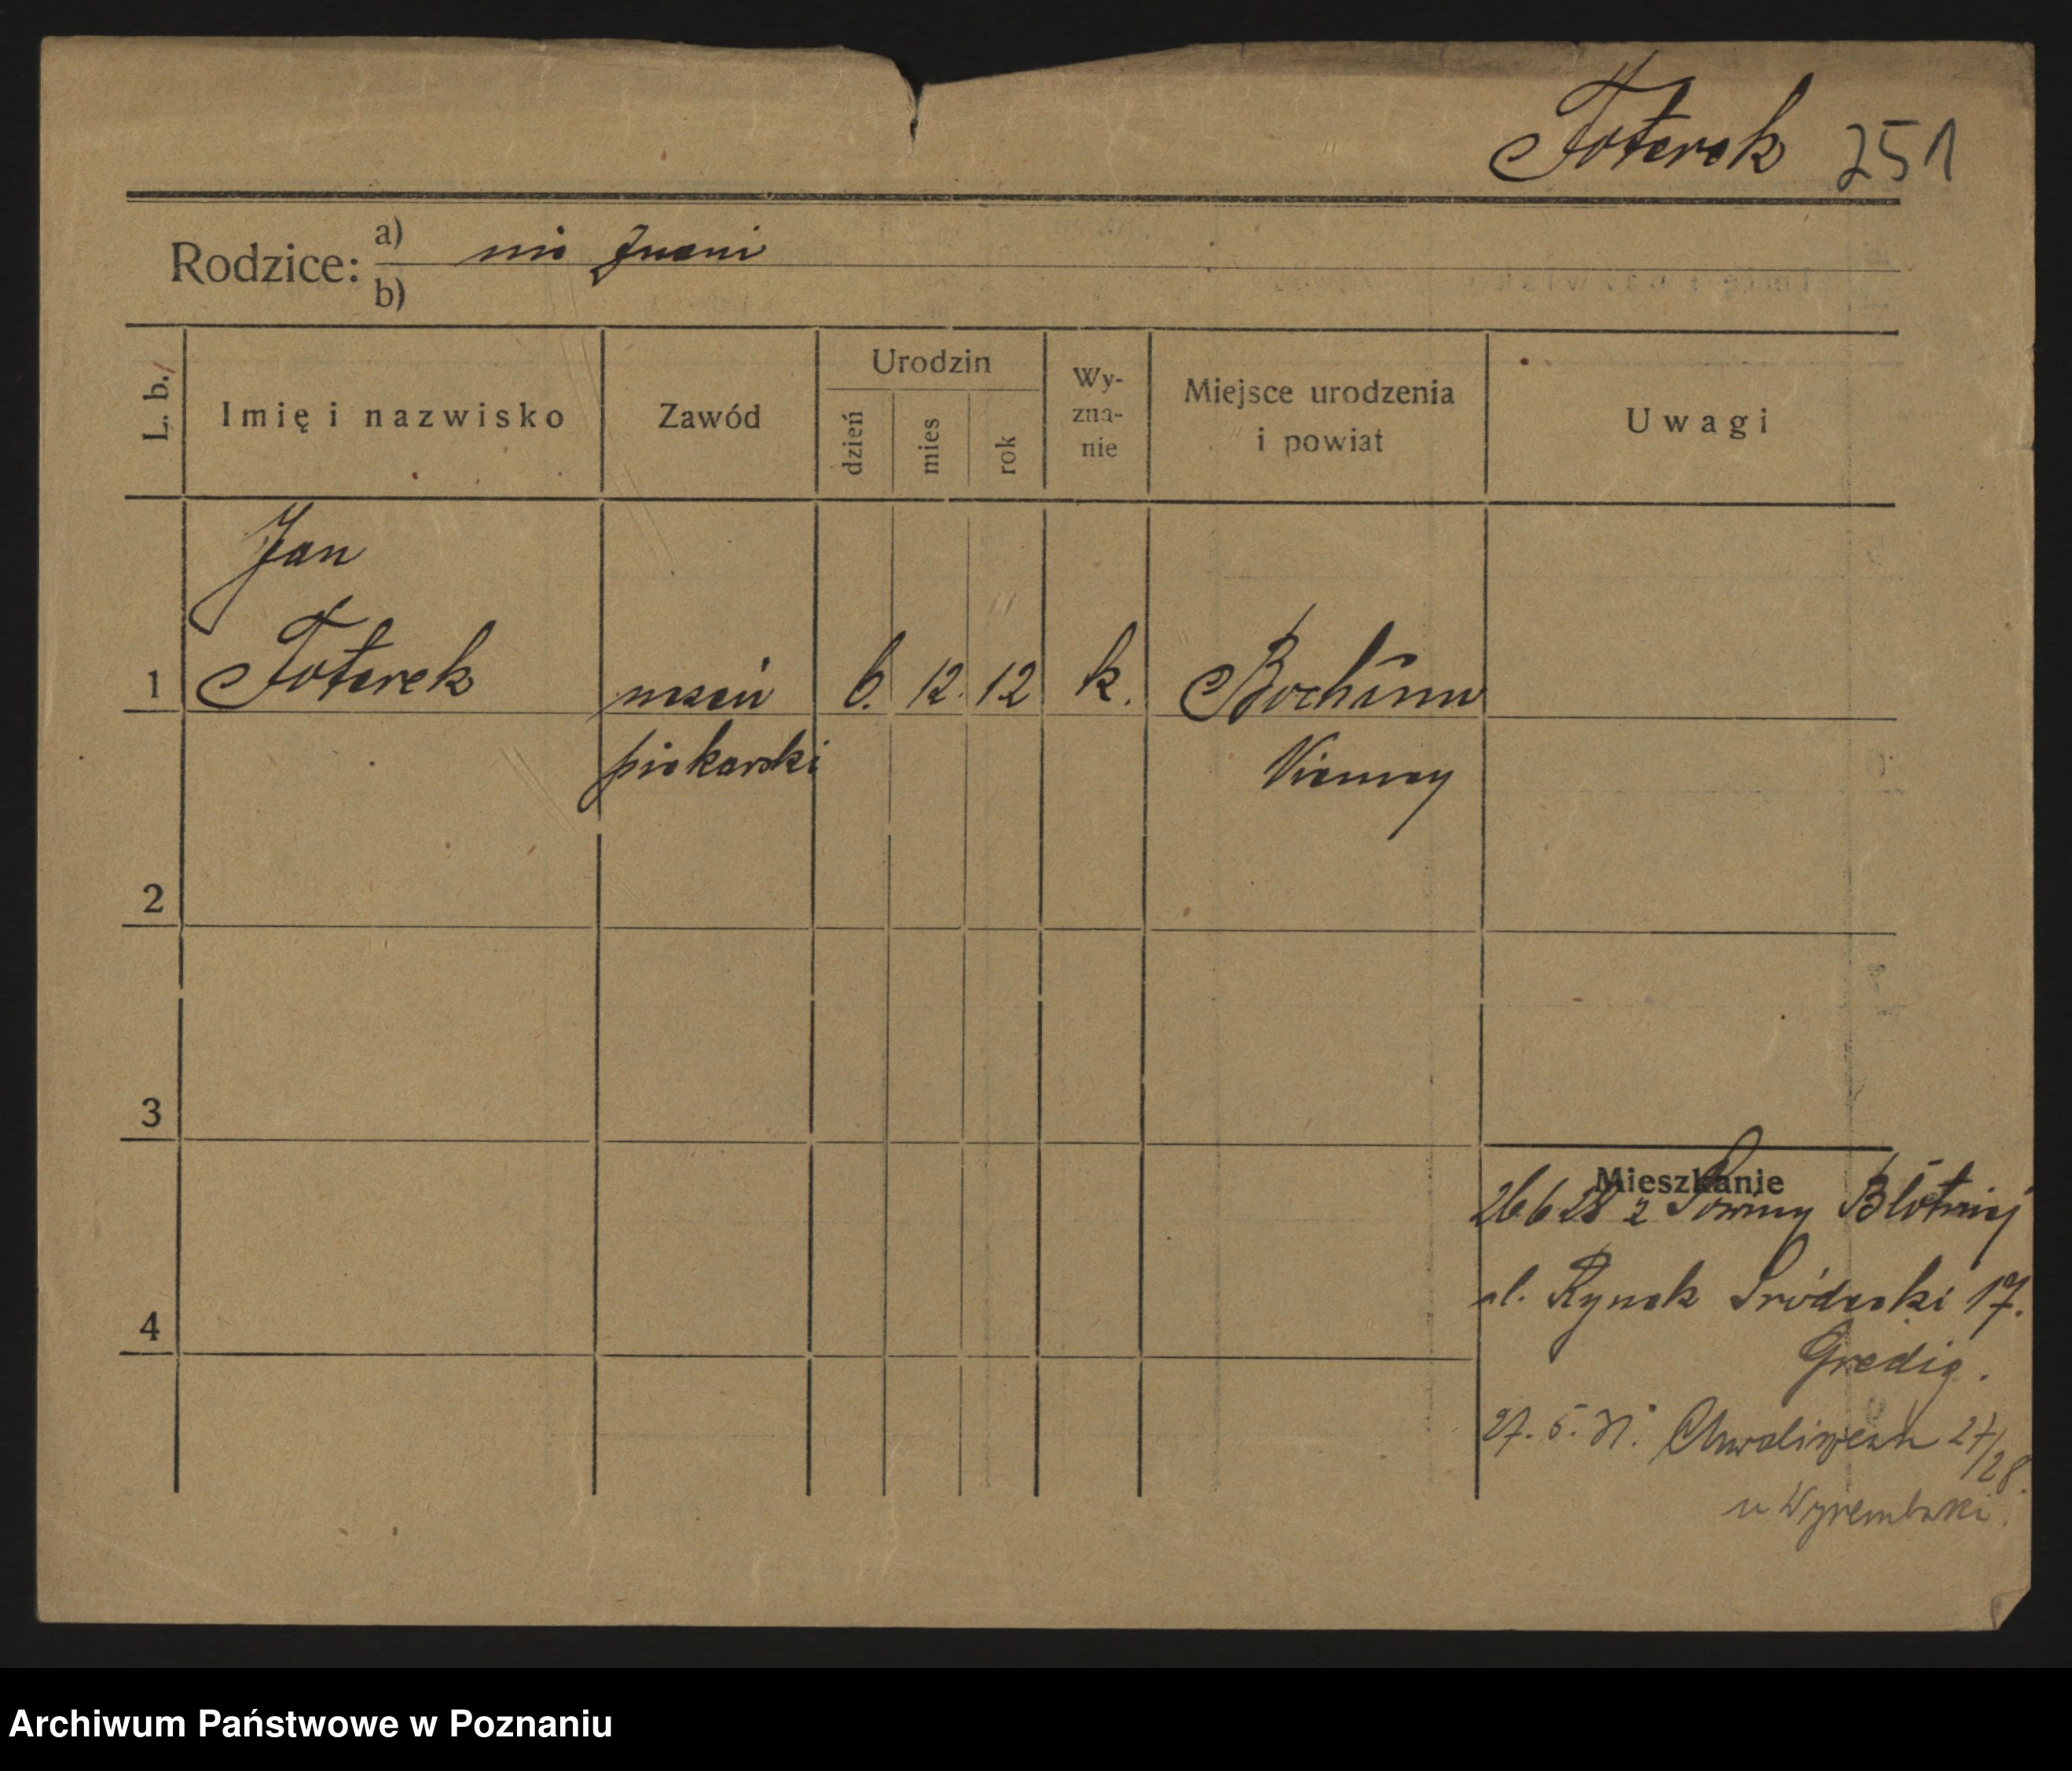 Foterek 251
Rodzice: a) nie znani
b)
L. b. Imię i nazwisko Zawód Urodzin dzień mies rok Wy-zna-nie Miejsce urodzenia i powiat Uwagi
Jan
1 Foterek uczeń 6. 12. 12 k. Bochum
piekarski Niemcy
2
3
Mieszkanie
26 6 28 z Błotnicy
ul. Rynek Śródecki 17.
4
Gredig.
27. 5. 31. Chwaliszewo 27/28.
u Wyrembski.
Archiwum Państwowe w Poznaniu